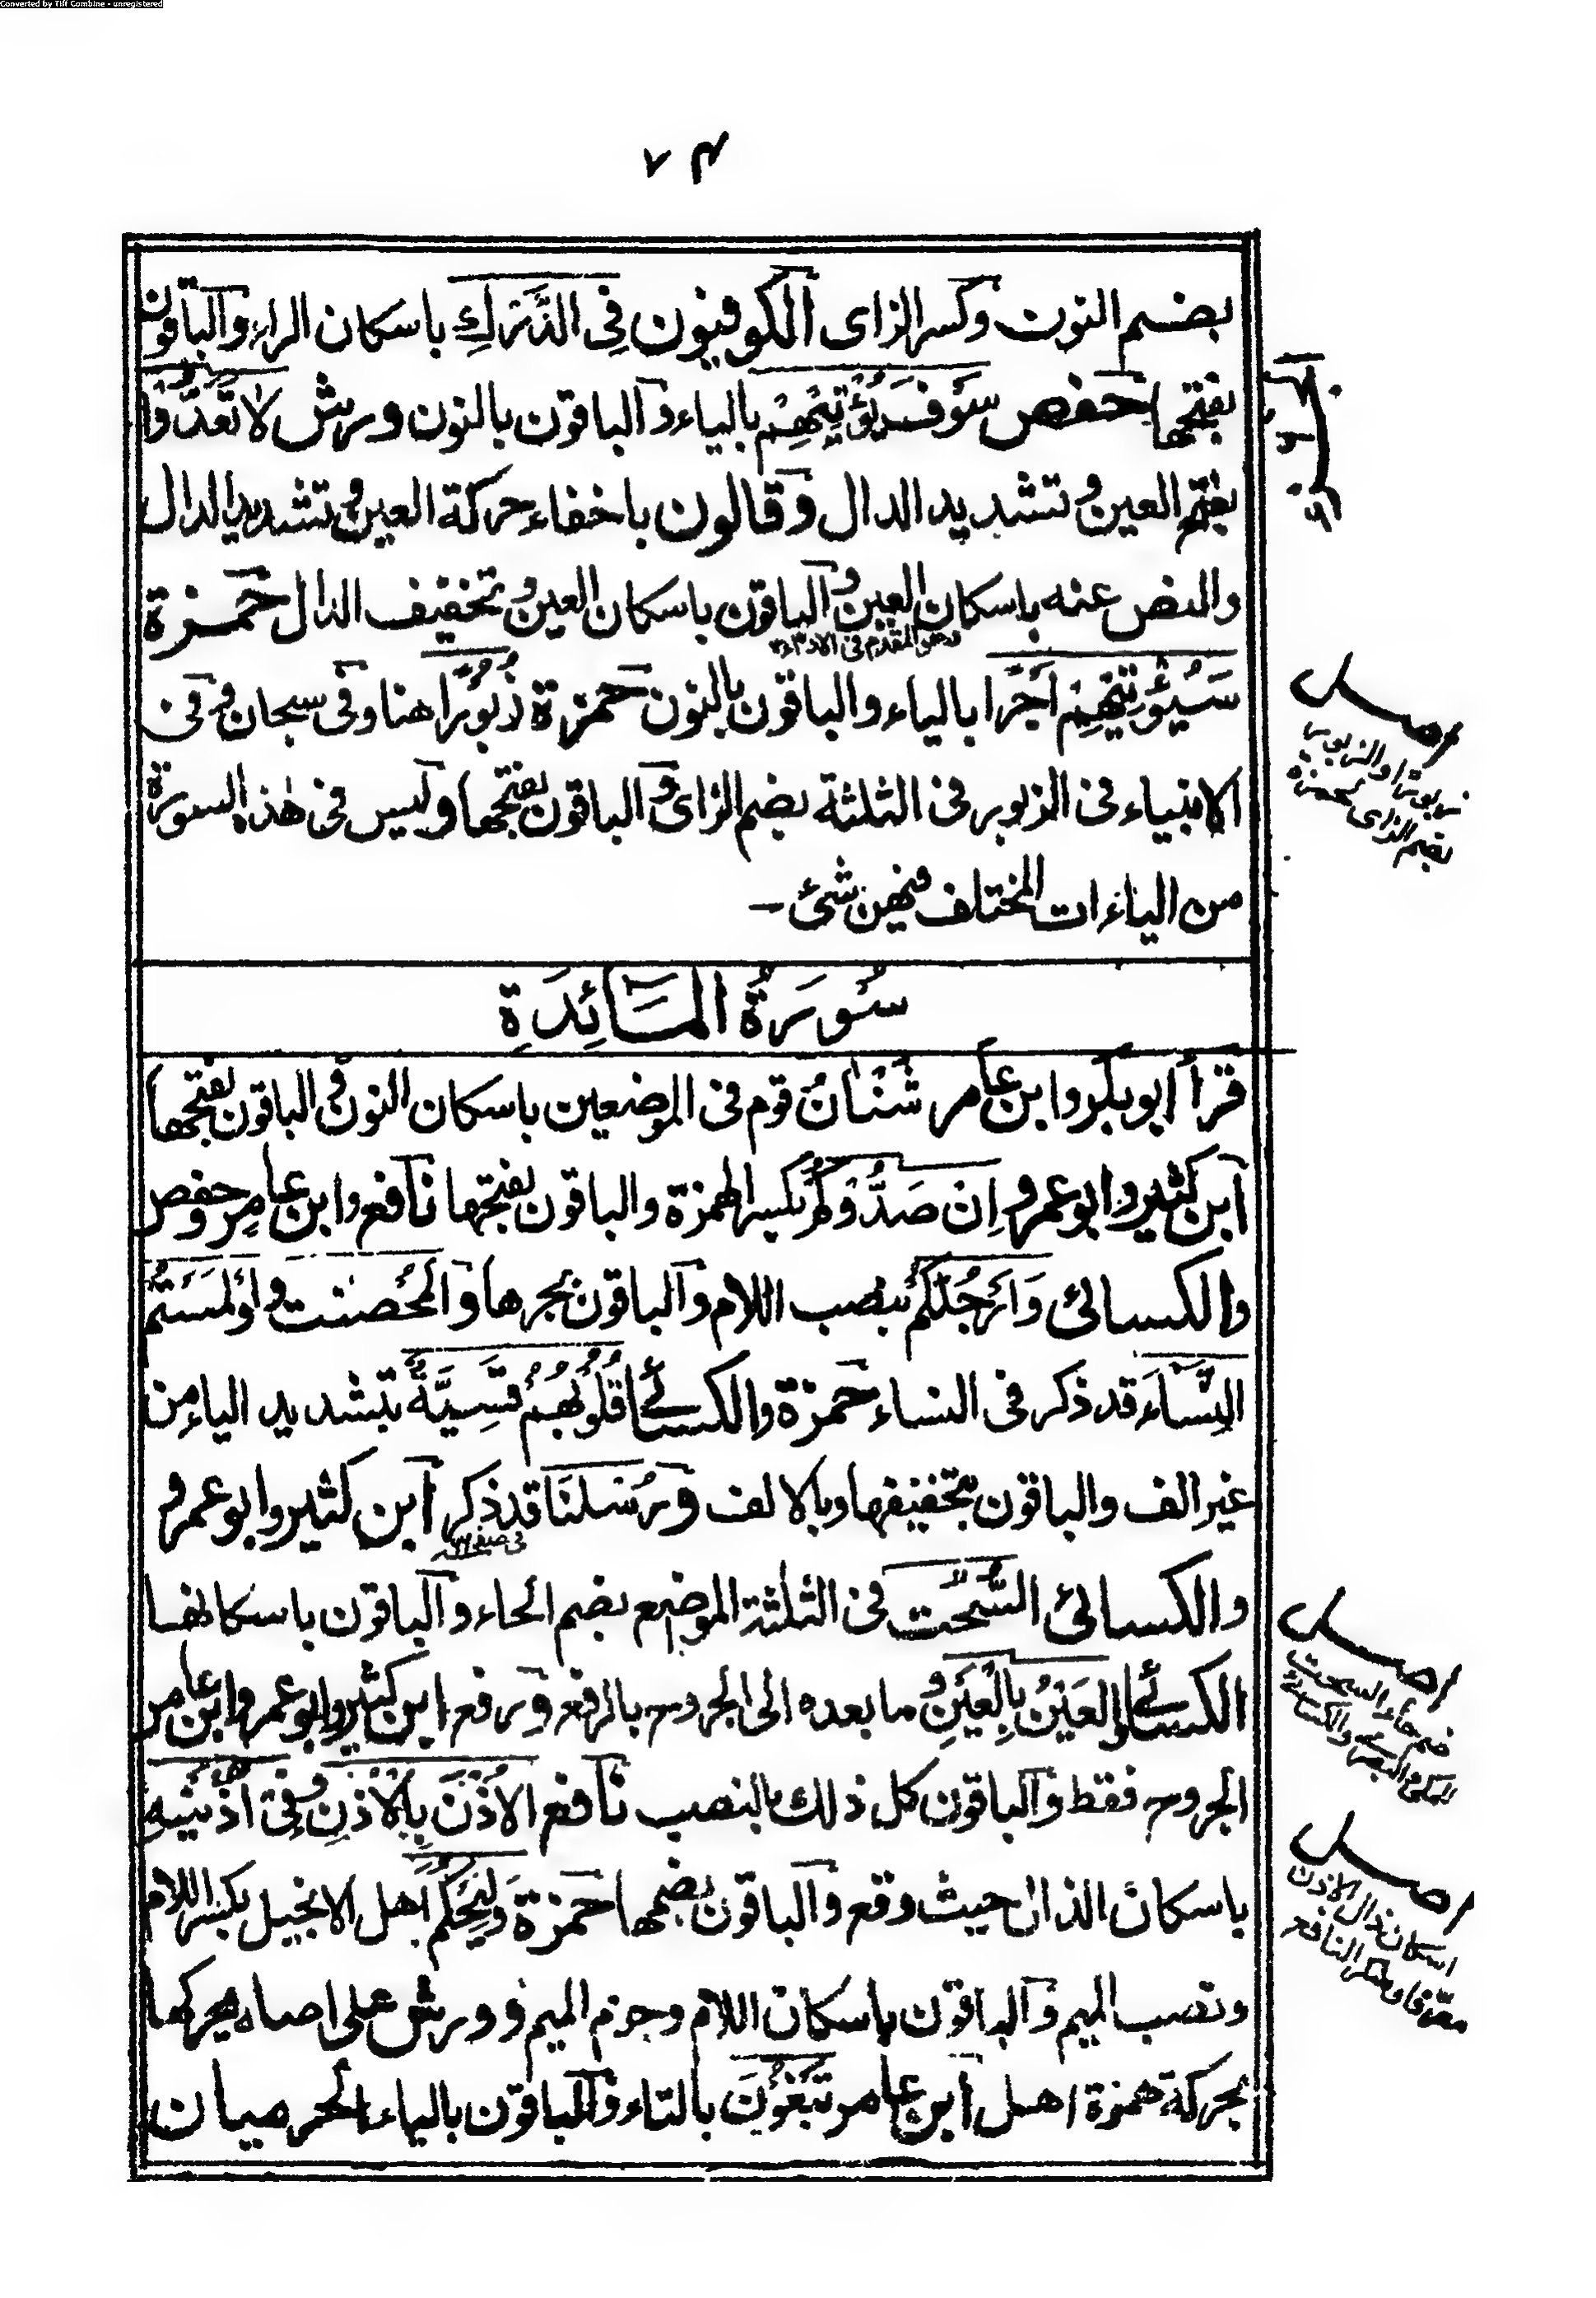 Converted by Tiff Combine - unregistered
٧٤
بضم النون وكسر الزاى الكوفيون فِى الدَّرْكِ باسكان الراء والباقون
بفتحها حفص سَوْفَ يُؤْتِيْهِمْ بالياء والباقون بالنون ورش لَا تَعَدُّوْا
بفتح العين وتشديد الدال وقالون باخفاء حركة العين وتشديد الدال
والنص عنه باسكان العين والباقون باسكان العين وتخفيف الدال حمزة
سَيُؤْتِيْهِمْ اَجْرًا بالياء والباقون بالنون حمزة زُبُوْرًا هنا وفى سبحان وفى
الانبياء فى الزبور فى الثلثة بضم الزاى والباقون بفتحها وليس فى هذه السورة
من الياءات المختلف فيهن شئ -
سُورَةُ الْمَائِدَةِ
قرأ ابو بكر وابن عامر شَنْاٰنُ قوم فى الموضعين باسكان النون والباقون بفتحها
ابن كثير وابو عمرو اِنْ صَدُّوْكُمْ بكسر الهمزة والباقون بفتحها نافع وابن عامر وحفص
والكسائى وَاَرْجُلَكُمْ بنصب اللام والباقون بجرها والْمُحْصَنٰت و اَوْلٰمَسْتُمُ
النِّسَآءَ قد ذكر فى النساء حمزة والكسائى قُلُوْبَهُمْ قَسِيَّةً بتشديد الياء من
غير الف والباقون بتخفيفها وبالالف ورُسُلُنَا قد ذكر ابن كثير وابو عمرو
والكسائى السُّحُت فى الثلثة المواضع بضم الحاء والباقون باسكانها
الكسائى والعَيْنُ بِالْعَيْنِ وما بعده الى الجروح بالرفع ورفع ابن كثير وابو عمرو وابن عامر
الجروح فقط والباقون كل ذلك بالنصب نافع الاُذْنَ بِالْاُذْنِ وفِىْ اُذْنَيْهِ
باسكان الذال حيث وقع والباقون بضمها حمزة وَلِيَحْكُمَ اهل الانجيل بكسر اللام
ونصب الميم والباقون باسكان اللام وجزم الميم وورش على اصله يحركها
بحركة همزة اهل ابن عامر تَبْغُوْنَ بالتاء والباقون بالياء الحرميان
اصل
زبورًا والزبور
بضم الزاى لحمزة
اصل
ضم حاء السحت
للمكى والبصرى والكسائى
اصل
اسكان ذال الاذن
معرفا ومنكرا لنافع